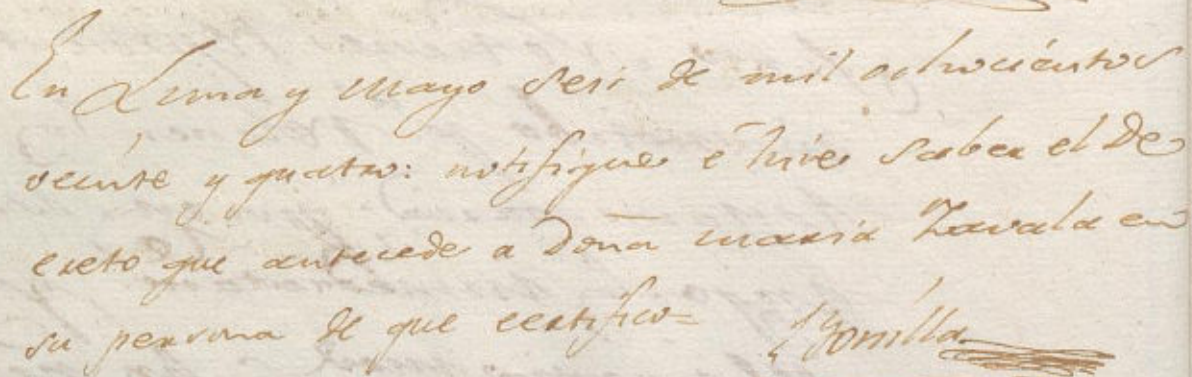 En Lima y Mayo seis de mil ochocientos
veinte y quatro: notifique e hice saber el De
creto que antecede a Doña maria Zavala en
su persona de que certifico=
Bonilla